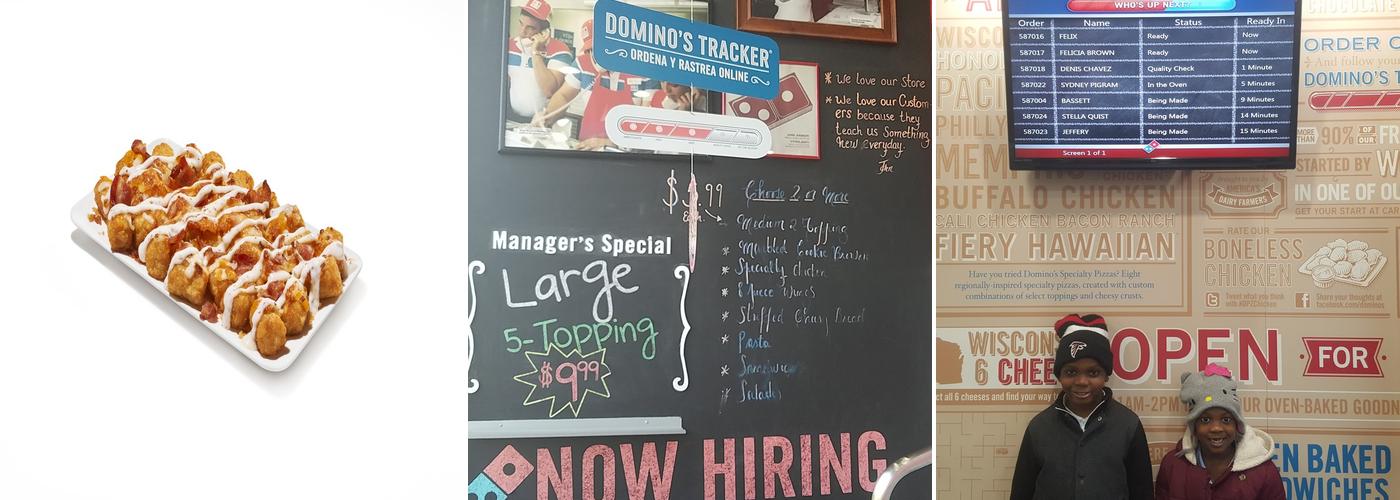 DOMINO'S TRACKER®
ORDENA Y RASTREA ONLINE
* We love our Store
* We love our Custom-
ers because they
teach us Something
New everyday.
$ .99
Choose 2 or More
Medium 2 Topping
* Marbled Cookie Brownie
* Specialty Chicken
* 8 Piece Wings
* Stuffed Cheesy Bread
* Pasta
* Sandwich
* Salads
Manager's Special
Large
5-Topping
$9.99
NOW HIRING
WHO'S UP NEXT?
Order Name Status Ready In
587016 FELIX Ready Now
587017 FELICIA BROWN Ready Now
587018 DENIS CHAVEZ Quality Check 1 Minute
587022 SYDNEY PIGRAM In the Oven 5 Minutes
587004 BASSETT Being Made 9 Minutes
587024 STELLA QUIST Being Made 14 Minutes
587023 JEFFERY Being Made 15 Minutes
Screen 1 of 1
WISCO
HONO
PACI
PHILLY
MEM
BUFFALO CHICKEN
CALI CHICKEN BACON RANCH
FIERY HAWAIIAN
Have you tried Domino's Specialty Pizzas? Eight
regionally-inspired specialty pizzas, created with custom
combinations of select toppings and cheesy crusts.
CHOCOLATE
ORDER O
And follow your
DOMINO'S T
MORE THAN 90% OF OUR F
STARTED BY W
IN ONE OF O
GET YOUR START AT CAR
Brought to you by
AMERICA'S
DAIRY FARMERS
RATE OUR
BONELESS
CHICKEN
Tweet what you think
with #DPZChicken
Share your thoughts at
facebook.com/dominos
WISCONS
6 CHEE
ct all 6 cheeses and find your way
OPEN FOR
1AM-2PM
UR OVEN-BAKED GOODN
EN BAKED
DWICHES